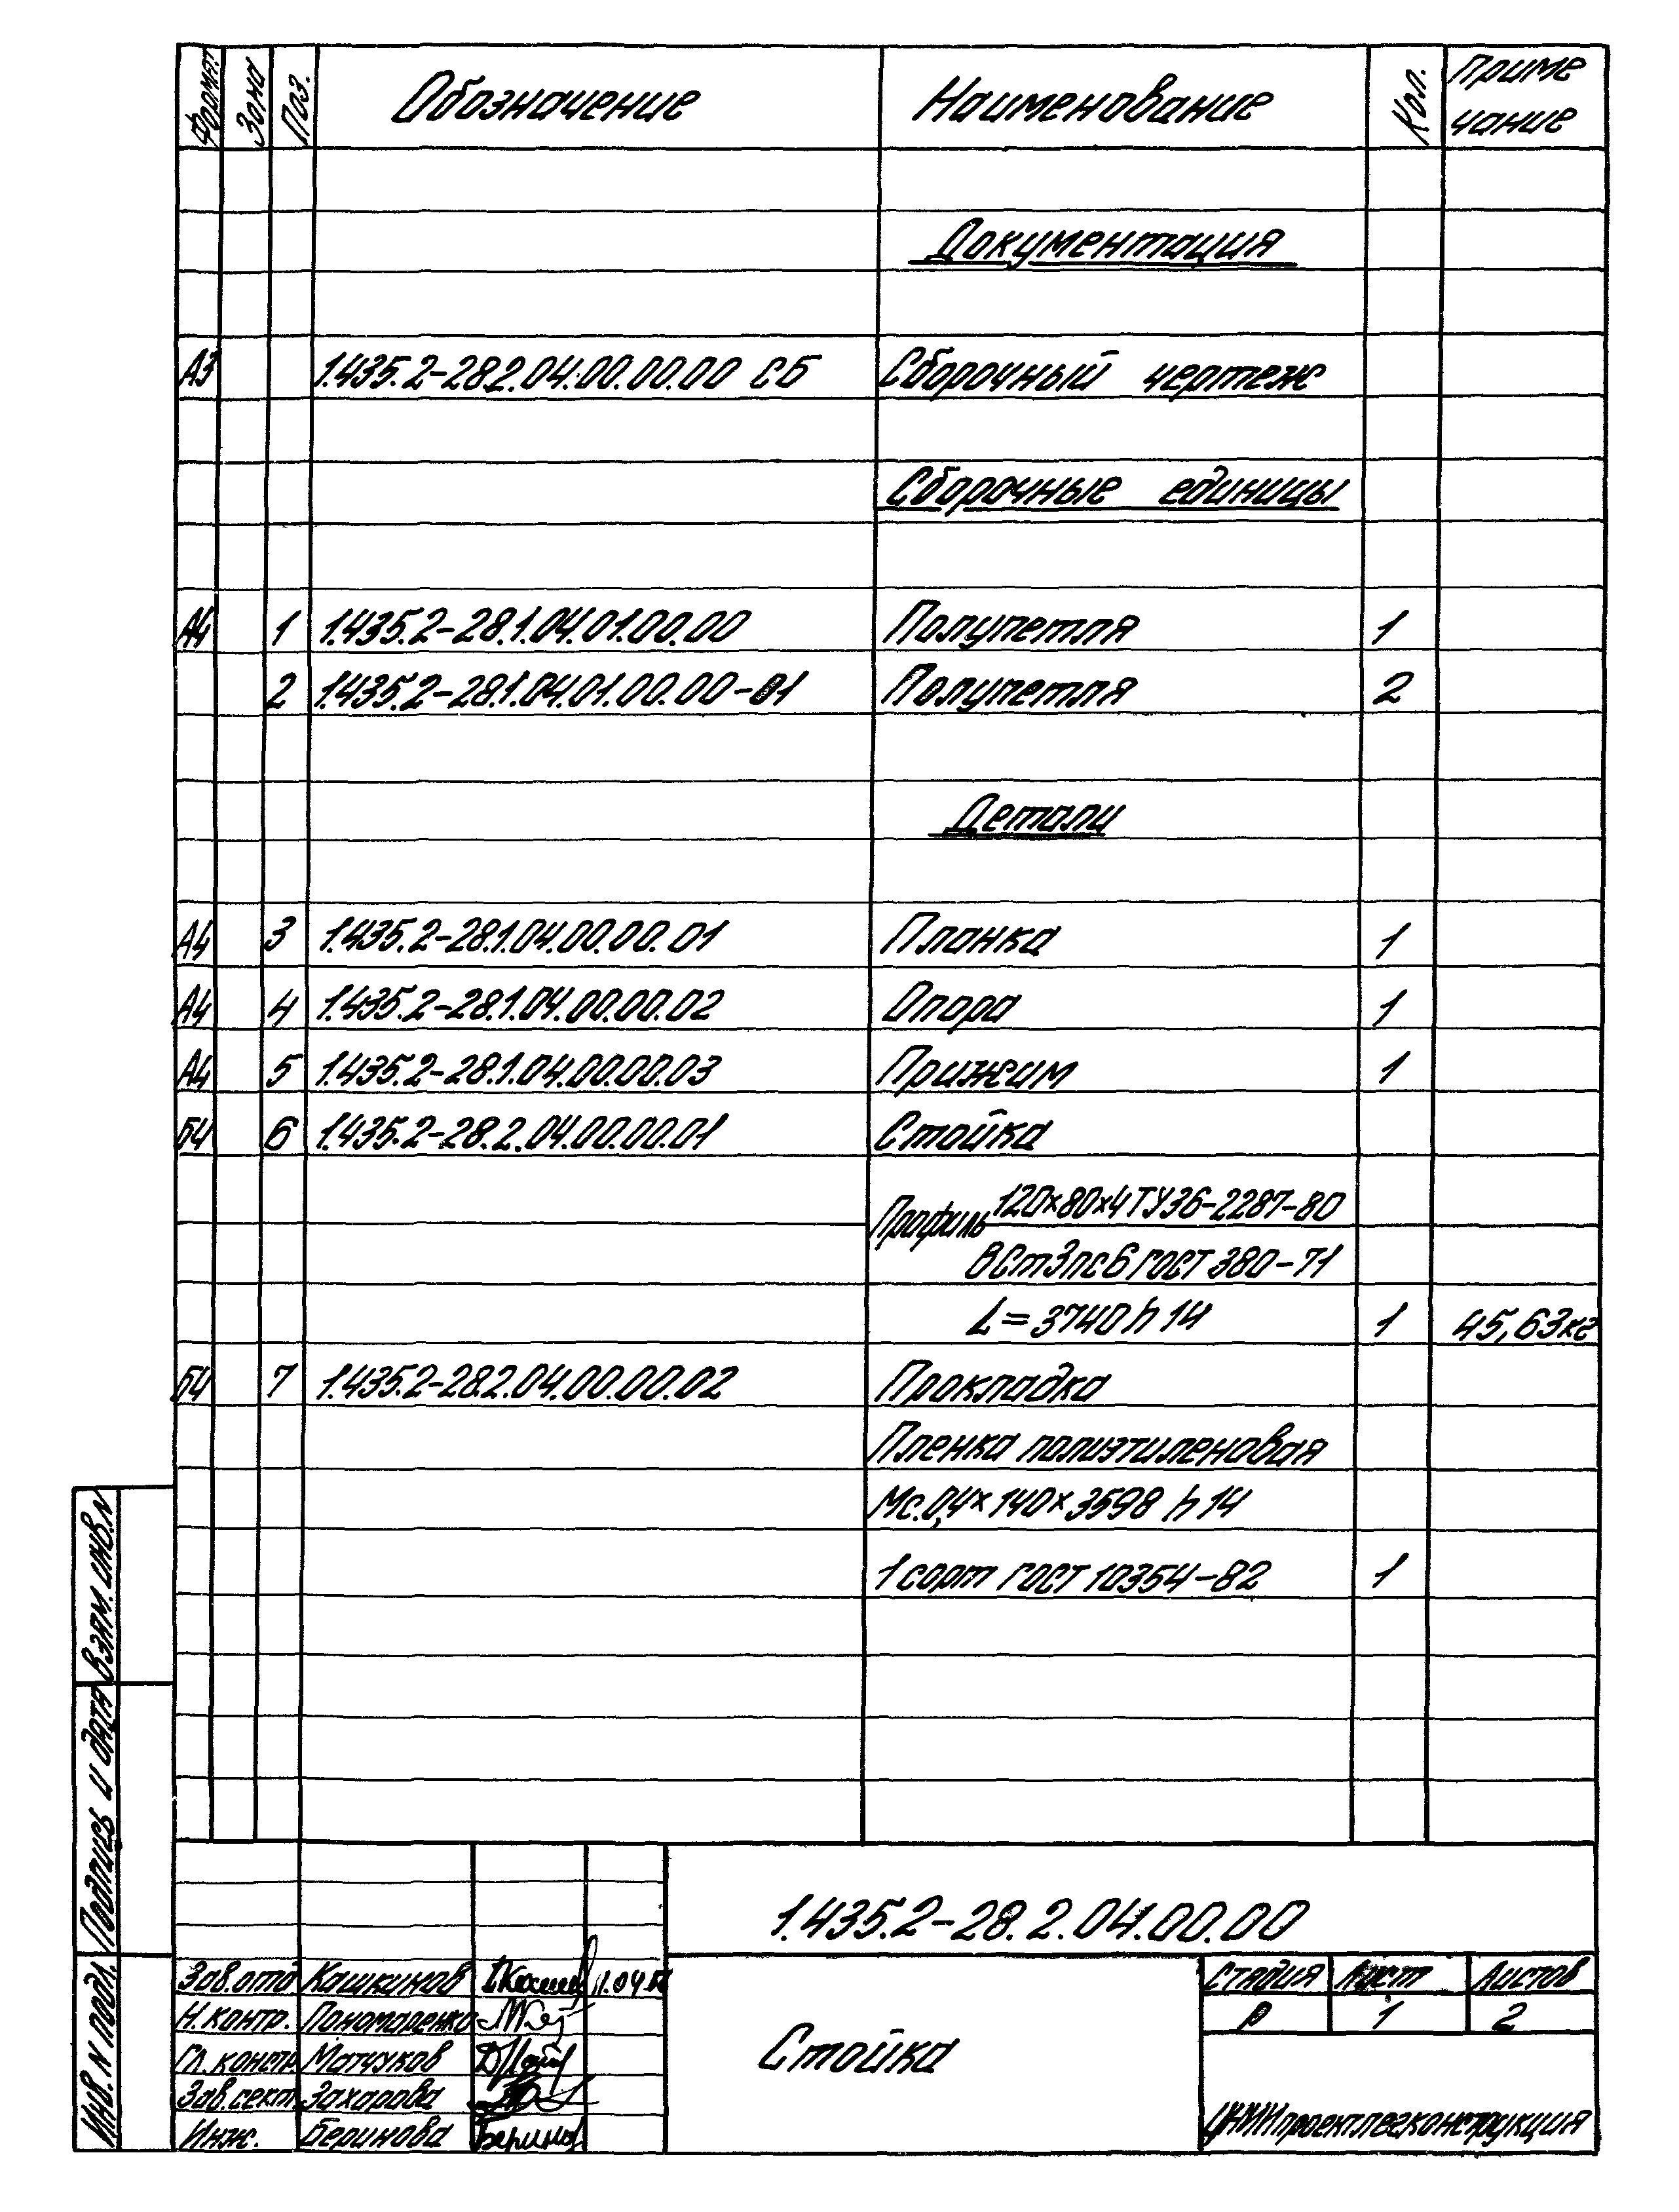 Формат Зона Поз. Обозначение Наименование Кол. Приме
чание
Документация
А3 1.435.2-28.2.04.00.00.00 СБ Сборочный чертеж
Сборочные единицы
А4 1 1.435.2-28.1.04.01.00.00 Полупетля 1
2 1.435.2-28.1.04.01.00.00-01 Полупетля 2
Детали
А4 3 1.435.2-28.1.04.00.00.01 Планка 1
А4 4 1.435.2-28.1.04.00.00.02 Опора 1
А4 5 1.435.2-28.1.04.00.00.03 Прижим 1
БЧ 6 1.435.2-28.2.04.00.00.01 Стойка
Профиль 120×80×4 ТУ36-2287-80
ВСт3пс6 ГОСТ 380-71
L=3740 h 14 1 45,63кг
БЧ 7 1.435.2-28.2.04.00.00.02 Прокладка
Пленка полиэтиленовая
Мс.0,4×140×3598 h 14
1 сорт ГОСТ 10354-82 1
Взам. инв. N
Подпись и дата
Инв. N подл.
1.435.2-28.2.04.00.00
Зав.отд Кашкинов 11.04
Н.контр. Пономаренко
Гл.констр. Матчуков
Зав.сект. Захарова
Инж. Беринова
Стойка
Стадия Лист Листов
Р 1 2
ЦНИИпроектлегконструкция